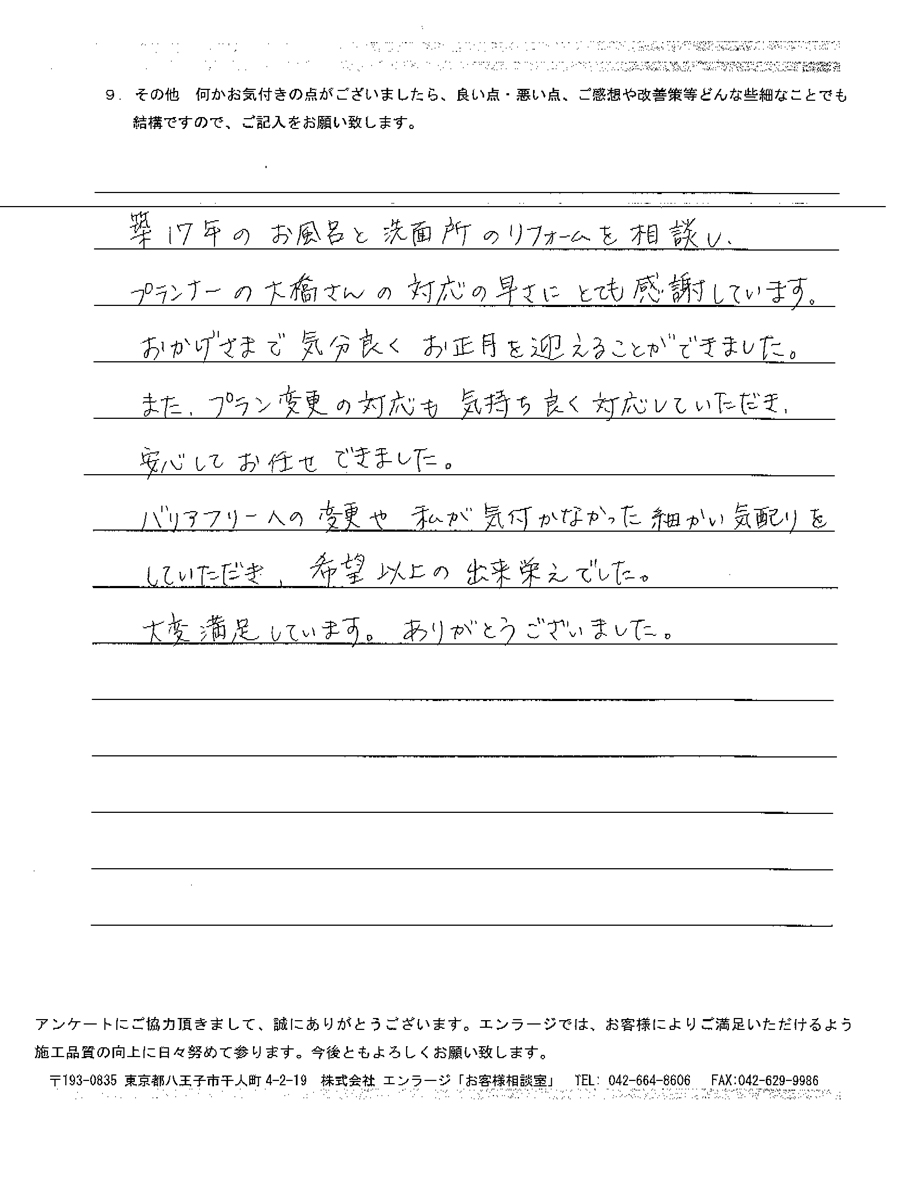 ９．その他　何かお気付きの点がございましたら、良い点・悪い点、ご感想や改善策等どんな些細なことでも
結構ですので、ご記入をお願い致します。
築17年のお風呂と洗面所のリフォームを相談し、
プランナーの大橋さんの対応の早さにとても感謝しています。
おかげさまで気分良くお正月を迎えることができました。
また、プラン変更の対応も気持ち良く対応していただき、
安心してお任せできました。
バリアフリーへの変更や私が気付かなかった細かい気配りを
していただき、希望以上の出来栄えでした。
大変満足しています。ありがとうございました。
アンケートにご協力頂きまして、誠にありがとうございます。エンラージでは、お客様によりご満足いただけるよう
施工品質の向上に日々努めて参ります。今後ともよろしくお願い致します。
〒193-0835 東京都八王子市千人町4-2-19　株式会社 エンラージ「お客様相談室」　TEL: 042-664-8606　FAX:042-629-9986